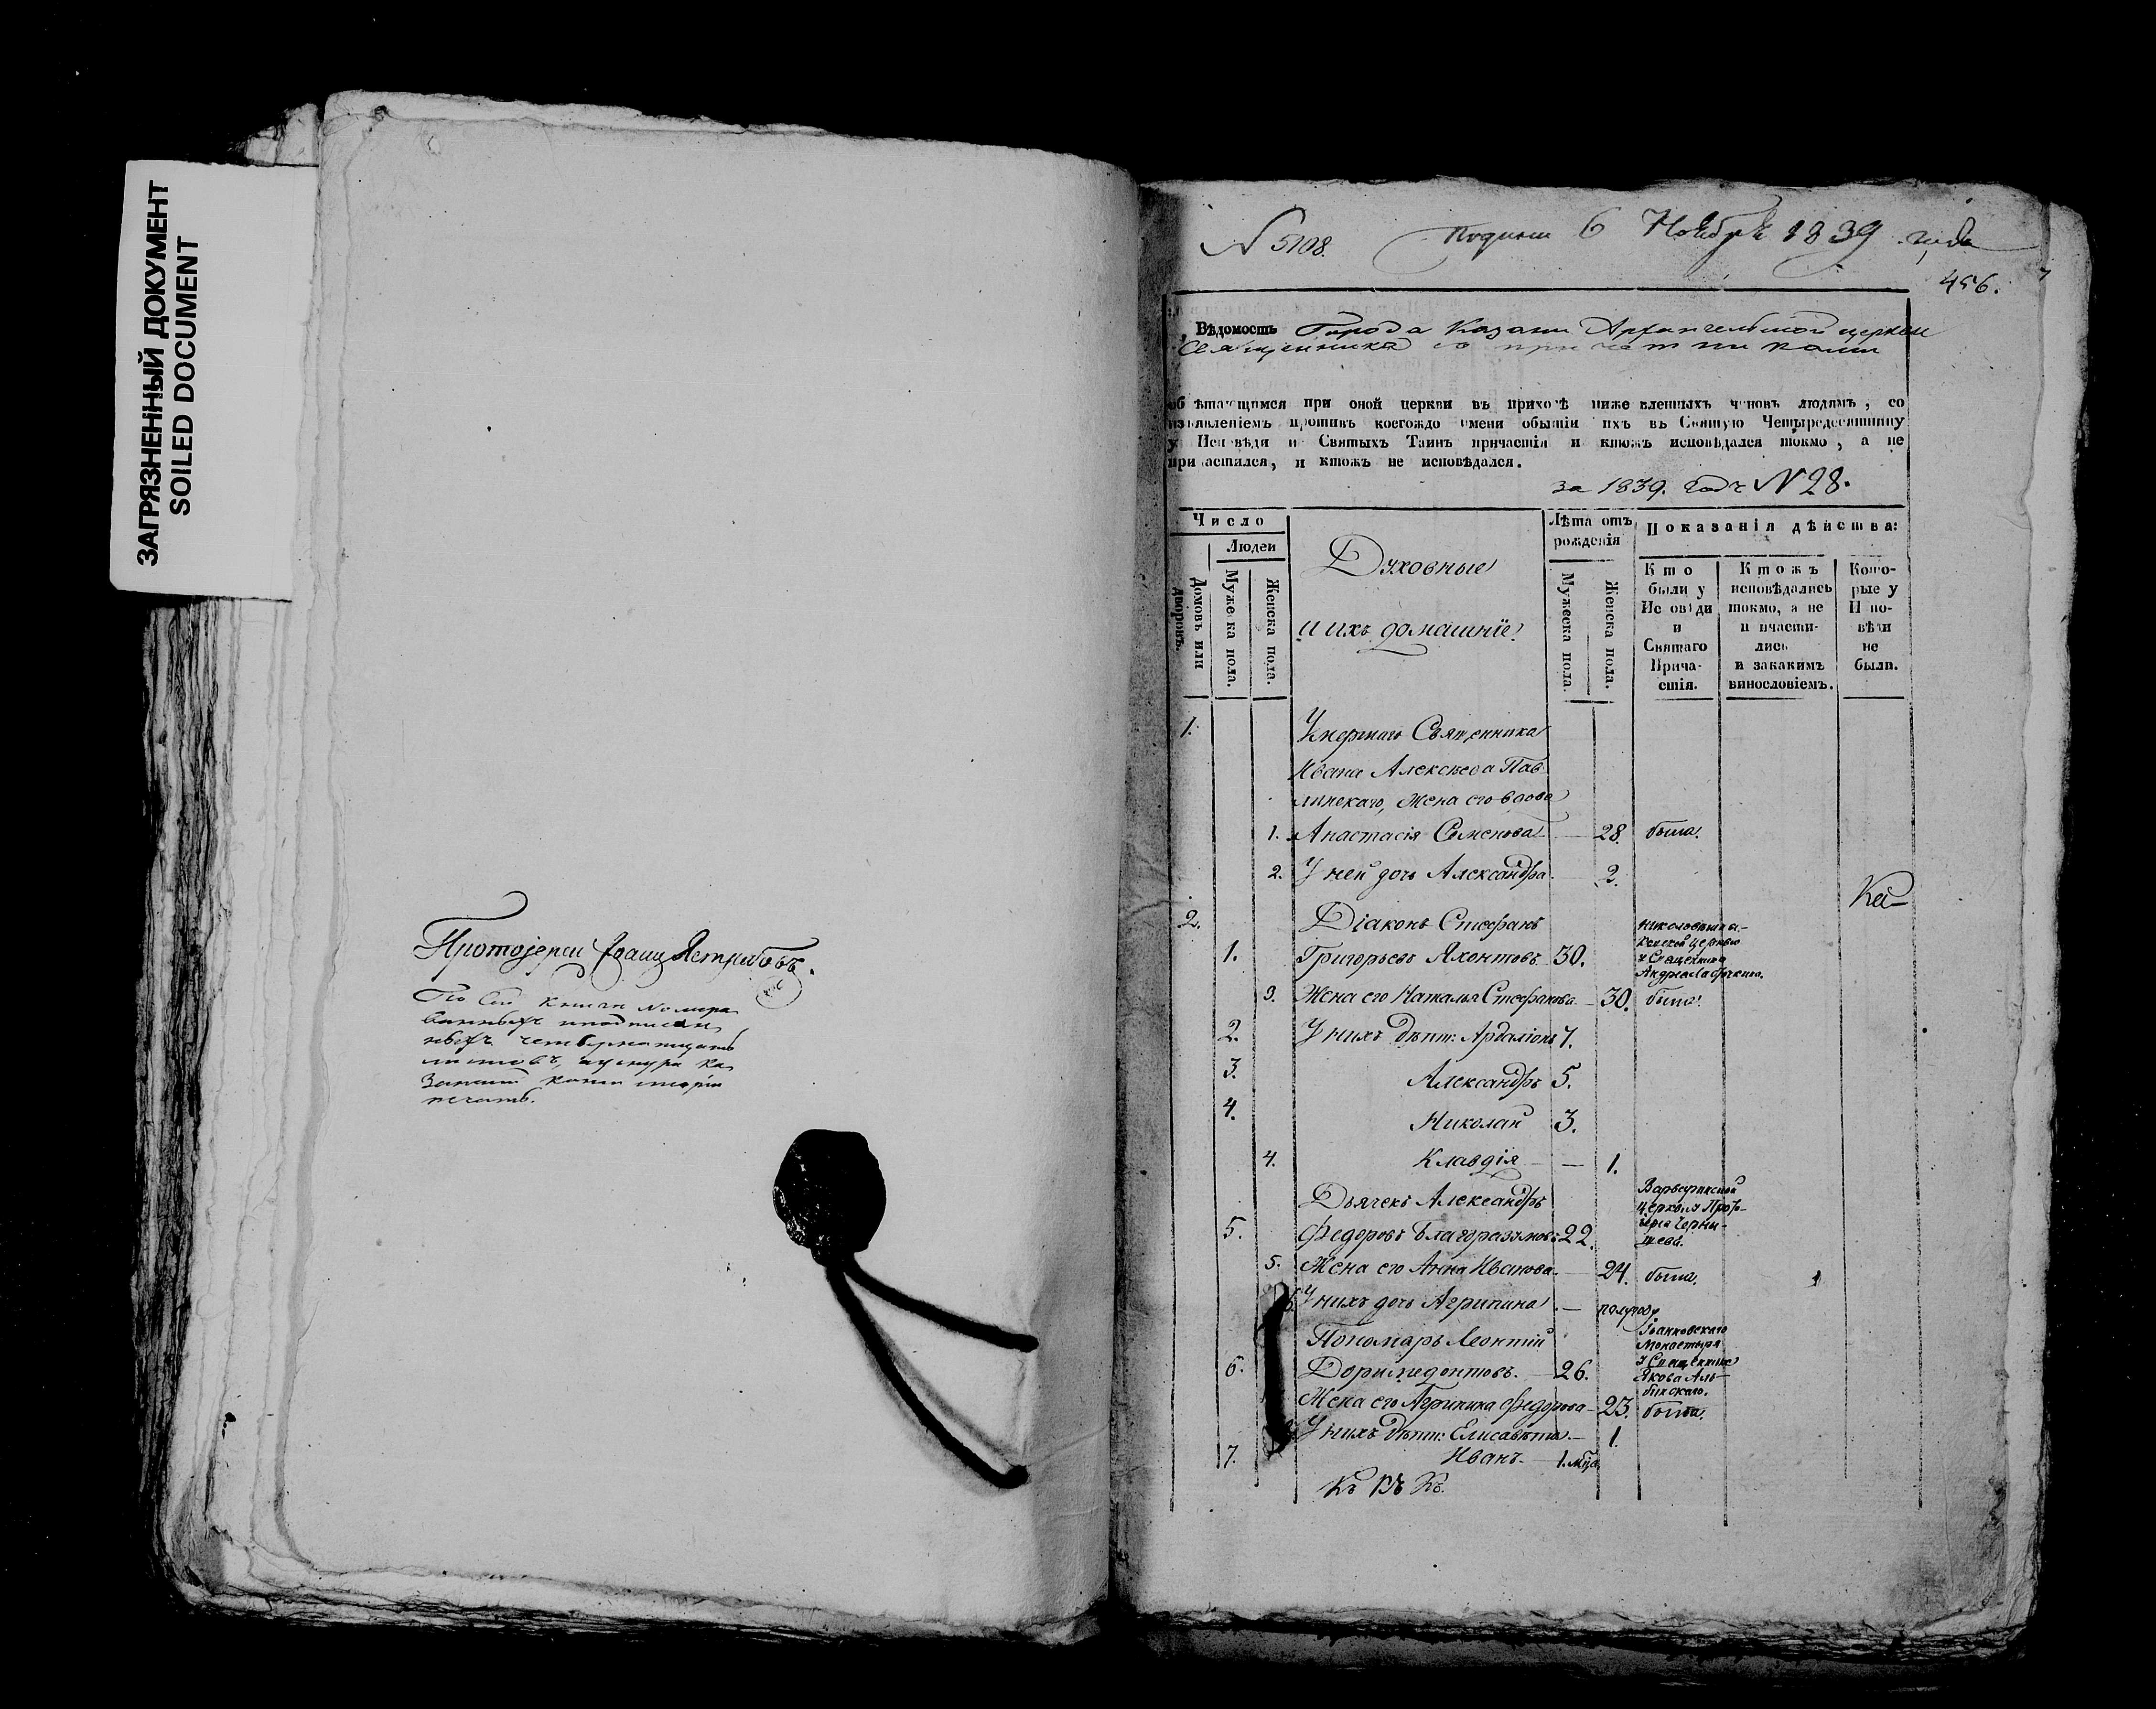 ЗАГРЯЗНЕННЫЙ ДОКУМЕНТ
SOILED DOCUMENT
Протоіереи Іоанн Ястребовъ.
По сей книги номеро
ванныхъ и подписан
ныхъ четвернатцать
листовъ, а у шнура Ка
занской консисторіи
печать.
N 5108. Подана 6 Ноября 1839 года
456.
Вѣдомость Города Казани Архангельской церкви
Священника съ причетниками
обѣтающимся при оной церкви въ приходѣ ниже вленныхъ чиновъ людямъ, со
изъявленіемъ противъ коегождо имени обытіи ихъ въ Святую Четыредесятницу
у Исповѣди и Святыхъ Таинъ причастія и ктожъ исповѣдался токмо, а не
причастился, и ктожъ не исповѣдался.
за 1839. годъ N 28.
Число
Людеи
Домовъ или дворовъ.
Мужеска пола.
Женска пола.
Духовные
и ихъ домашніе.
Лѣта отъ рожденія
Мужеска пола.
Женска пола.
Показанія дѣиства:
Кто были у Исповѣди и Святаго Причастія.
Ктожъ исповѣдались токмо, а не причастились и закакимъ винословіемъ.
Которые у Исповѣди не были.
1. Умершаго Священника
Ивана Алексѣева Пав
линскаго, жена его вдова
1. Анастасія Семенова — 28. была.
2. У ней дочь Александра — 2.
Ка—
2. Діаконъ Стефанъ
1. Григорьевъ Яхонтовъ 30.
церкви
у Священника
Андрея
3. Жена его Наталья Стефанова — 30. была.
2. У нихъ дѣти: Ардаліонъ 7.
3. Александръ 5.
4. Николай 3.
4. Клавдія — 1.
Дьячекъ Александръ
5. Федоровъ Благоразумовъ 22.
Варваринской
церкви у Прото-
іерея Черны-
шева.
5. Жена его Анна Иванова — 24. была.
6. У нихъ дочь Агрипина — полугоду
Пономарь Леонтій
6. Доримедонтовъ. — 26.
Іоанновскаго
Монастыря
у Священника
Якова Аль-
бинскаго.
Жена его Агрипина Федорова — 23. была.
У нихъ дѣти: Елисавета. — 1.
7. Иванъ — 1. мѣс.